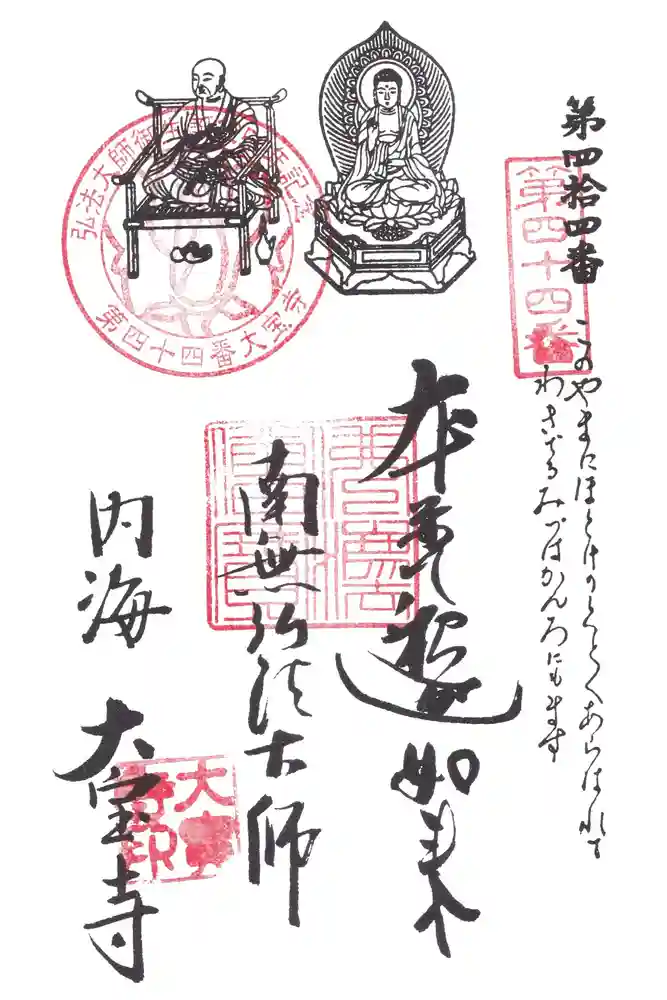 第四拾四番
第四十四番
このやまにほとけのとく あらはれて
わきでるみづはかんろにもます
弘法大師御
第四十四番大宝寺
本尊釈迦如来
南無弘法大師
内海 大宝寺
大宝寺印